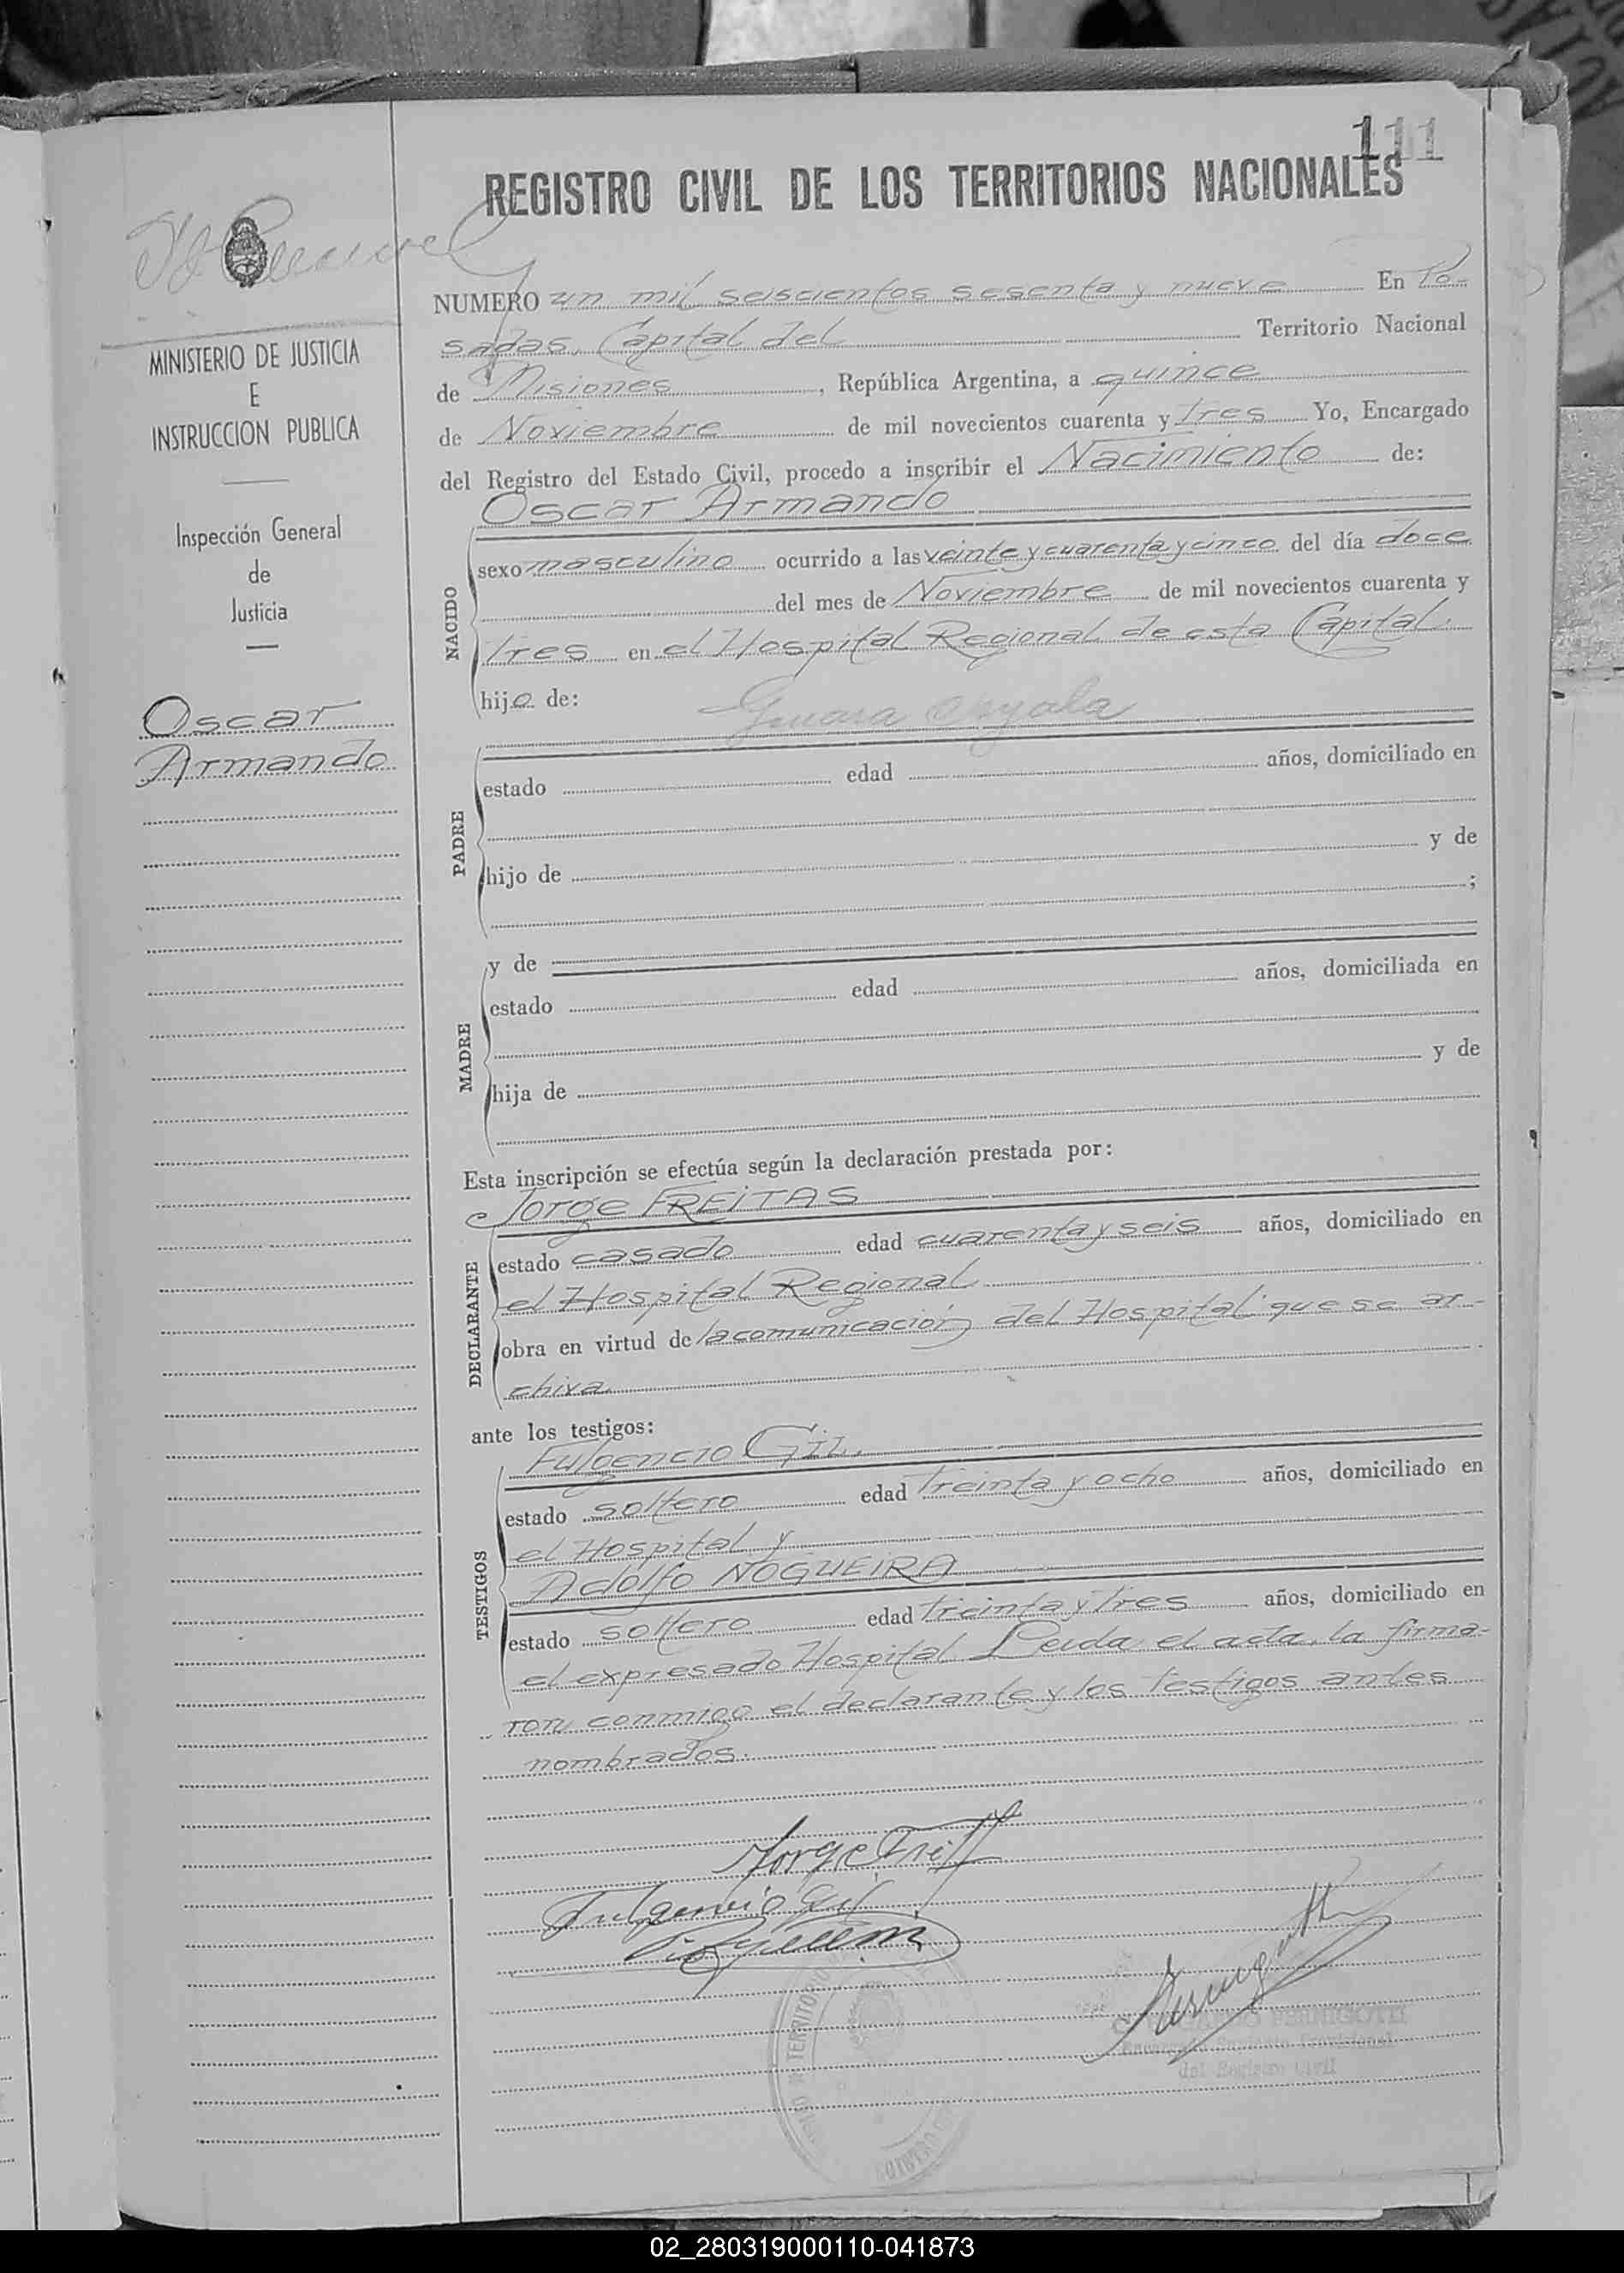 111
REGISTRO CIVIL DE LOS TERRITORIOS NACIONALES
MINISTERIO DE JUSTICIA
E
INSTRUCCION PUBLICA
Inspección General
de
Justicia
Oscar
Armando
NUMERO un mil seiscientos sesenta y nueve En Po-
sadas, Capital del Territorio Nacional
de Misiones, República Argentina, a quince
de Noviembre de mil novecientos cuarenta y tres Yo, Encargado
del Registro del Estado Civil, procedo a inscribir el Nacimiento de:
Oscar Armando
NACIDO
sexo masculino ocurrido a las veinte y cuarenta y cinco del día doce
del mes de Noviembre de mil novecientos cuarenta y
tres en el Hospital Regional de esta Capital.
hijo de:
Ayala
PADRE
estado edad años, domiciliado en
hijo de y de
;
y de
MADRE
estado edad años, domiciliada en
hija de y de
Esta inscripción se efectúa según la declaración prestada por:
Jorge FREITAS
DECLARANTE
estado casado edad cuarenta y seis años, domiciliado en
el Hospital Regional
obra en virtud de la comunicación del Hospital que se ar-
chiva
ante los testigos:
Fulgencio GIL
TESTIGOS
estado soltero edad treinta y ocho años, domiciliado en
el Hospital y
Adolfo NOGUEIRA
estado soltero edad treinta y tres años, domiciliado en
el expresado Hospital. Leida el acta, la firma-
ron conmigo el declarante y los testigos antes
nombrados.
Jorge Freitas
Fulgencio Gil
TERRITORIO
del Registro Civil
02_280319000110-041873